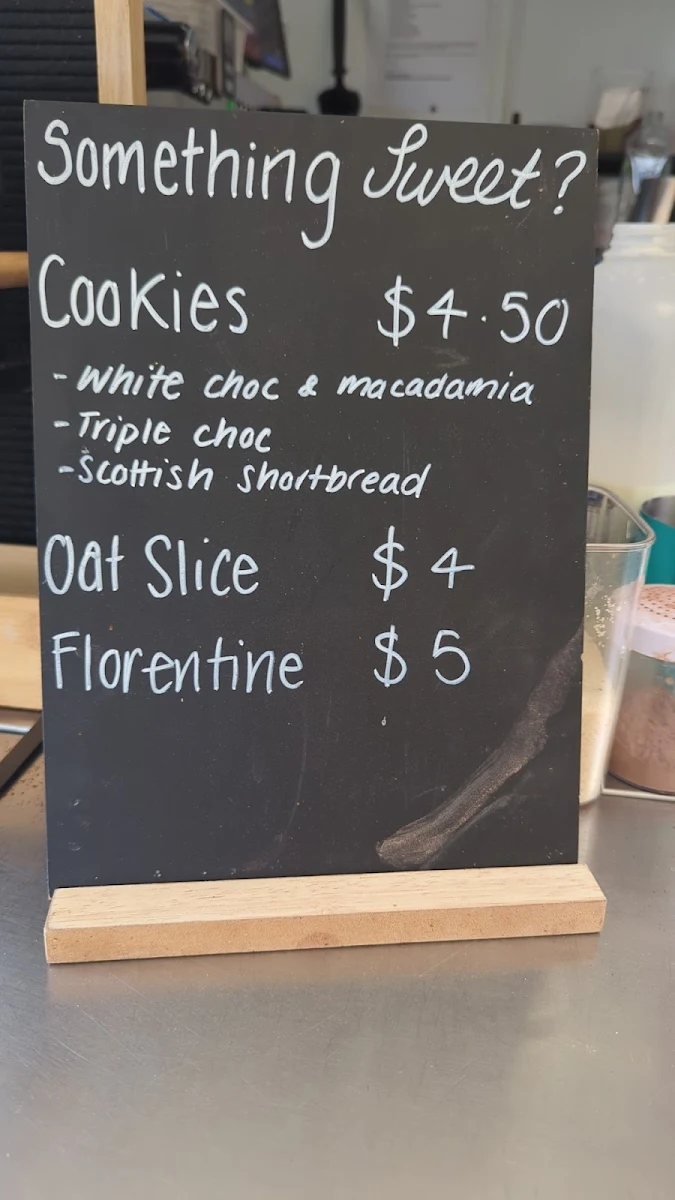 Something Sweet?
Cookies $4.50
- White choc & macadamia
- Triple choc
- Scottish Shortbread
Oat Slice $4
Florentine $5